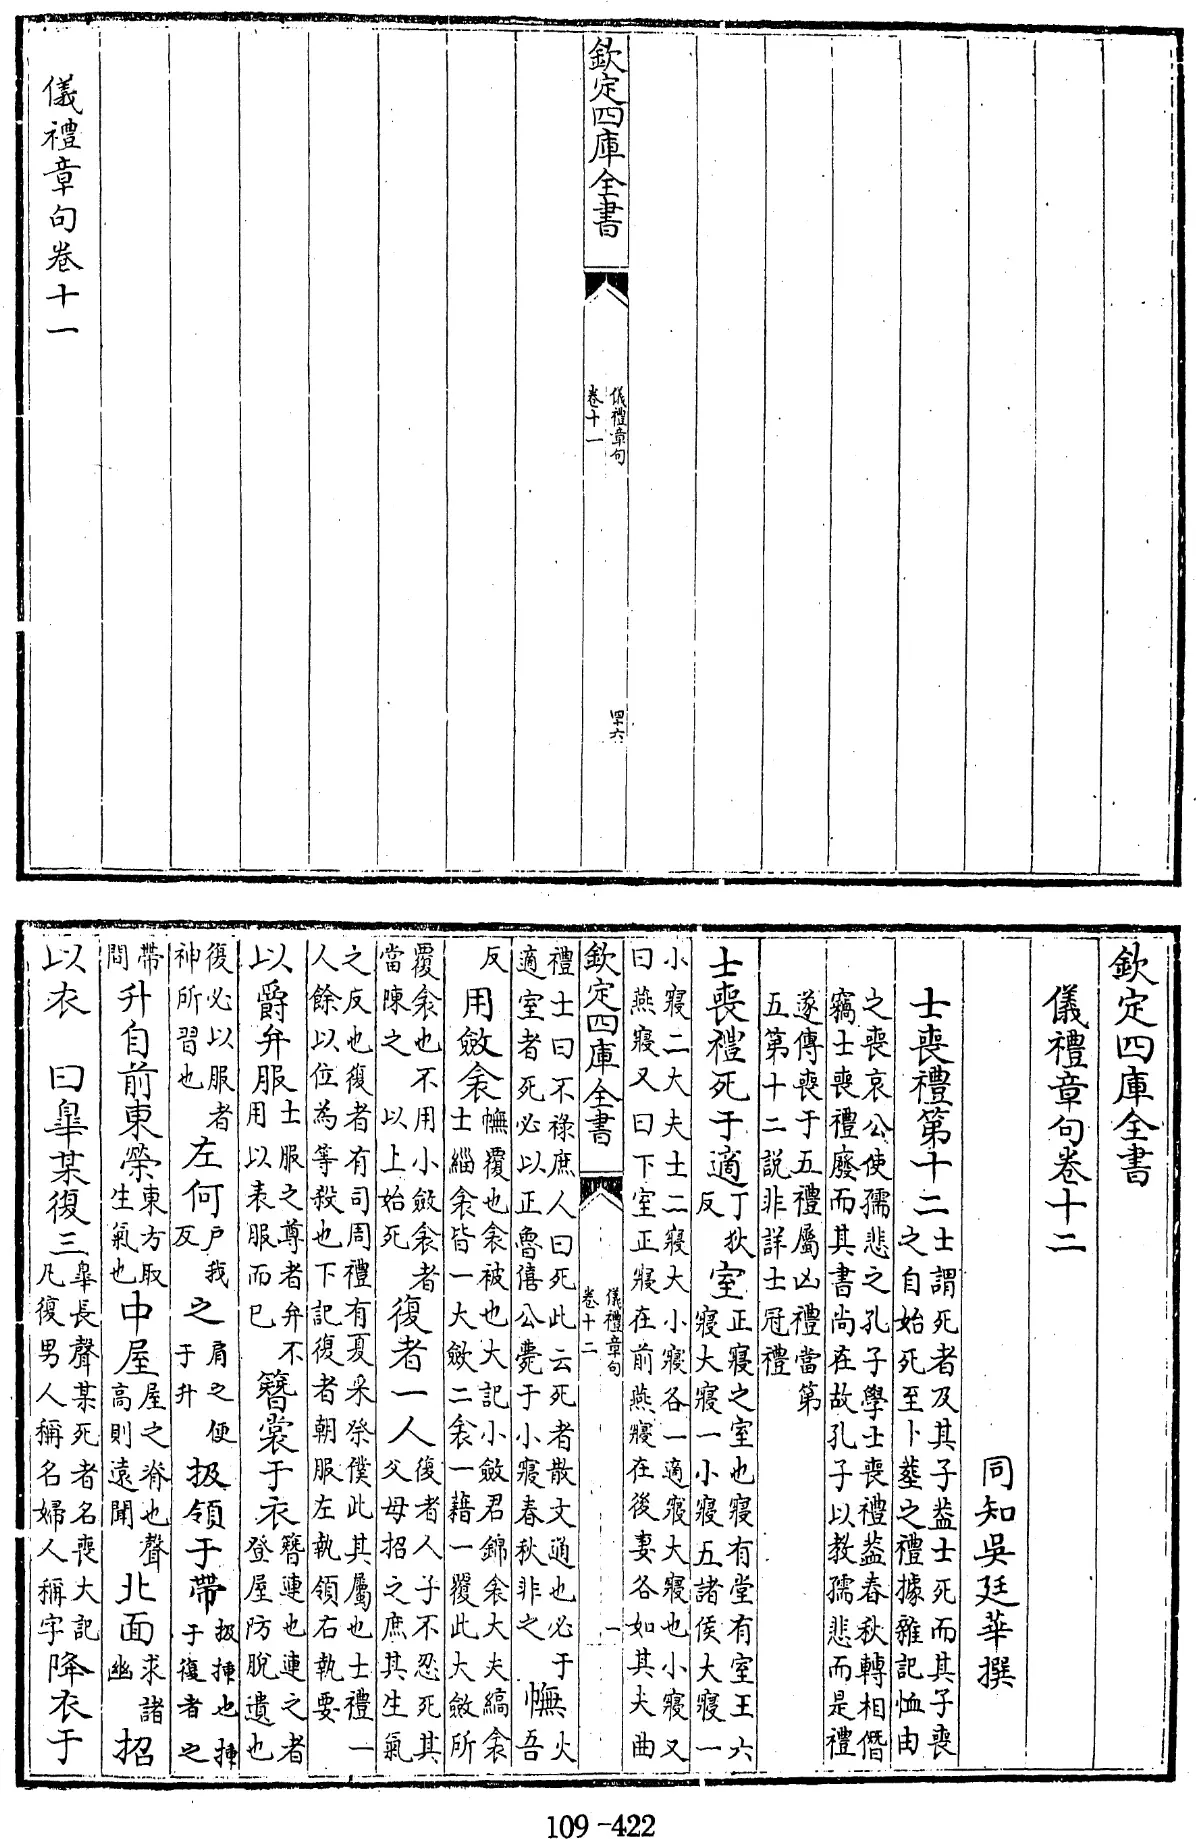 欽定四庫全書
儀禮章句
卷十一
四十六
儀禮章句卷十一
欽定四庫全書
儀禮章句卷十二
同知吳廷華撰
士喪禮第十二士謂死者及其子葢士死而其子喪之自始死至卜塟之禮據雜記恤由
之喪哀公使孺悲之孔子學士喪禮葢春秋轉相僭竊士喪禮廢而其書尚在故孔子以教孺悲而是禮
遂傳喪于五禮屬凶禮當第五第十二說非詳士冠禮
士喪禮死于適丁狄反室正寢之室也寢有堂有室王六寢大寢一小寢五諸侯大寢一
小寢二大夫士二寢大小寢各一適寢大寢也小寢又曰燕寢又曰下室正寢在前燕寢在後妻各如其夫曲
欽定四庫全書
儀禮章句
卷十二
一
禮士曰不祿庶人曰死此云死者散文通也必于適室者死必以正魯僖公薨于小寢春秋非之幠火吾
反用斂衾幠覆也衾被也大記小斂君錦衾大夫縞衾士緇衾皆一大斂二衾一藉一覆此大斂所
覆衾也不用小斂衾者當陳之以上始死復者一人復者人子不忍死其父母招之庶其生氣
之反也復者有司周禮有夏采祭僕此其屬也士禮一人餘以位為等殺也下記復者朝服左執領右執要
以爵弁服士服之尊者弁不用以表服而已簪裳于衣簪連也連之者登屋防脫遺也
復必以服者神所習也左何戶我反之肩之便于升扱領于帶扱插也插于復者之
帶間升自前東榮東方取生氣也中屋屋之脊也聲高則遠聞北面求諸幽招
以衣曰臯某復三臯長聲某死者名喪大記凡復男人稱名婦人稱字降衣于
109-422